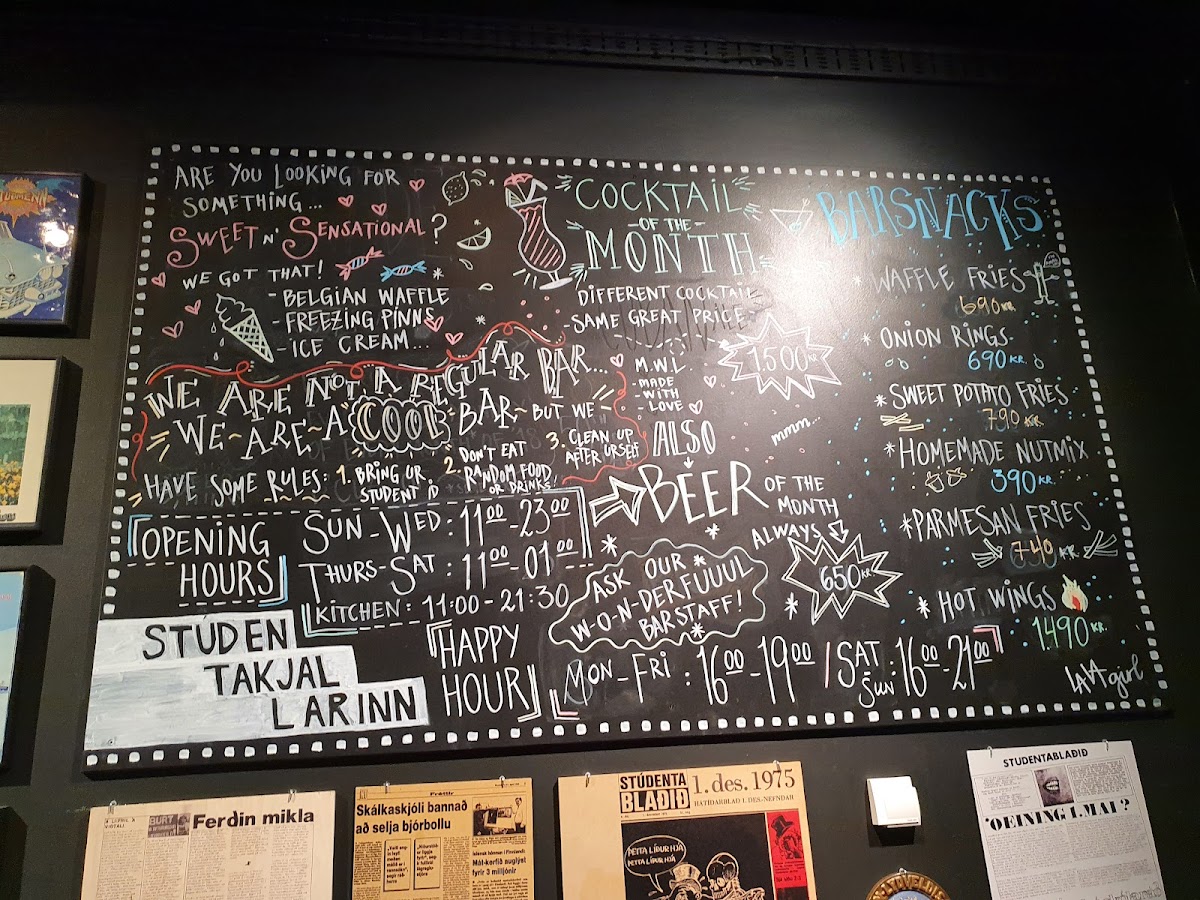 ARE YOU LOOKING FOR
SOMETHING...
SWEET N' SENSATIONAL?
WE GOT THAT!
- BELGIAN WAFFLE
- FREEZING PINNS
- ICE CREAM...
WE ARE NOT A REGULAR BAR...
WE ~ ARE ~ A COOL BAR ~ BUT WE ~
HAVE SOME RULES:
1. BRING UR
STUDENT ID
2. DON'T EAT
RANDOM FOOD
OR DRINKS
3. CLEAN UP
AFTER URSELF
OPENING
HOURS
SUN - WED : 11⁰⁰ - 23⁰⁰
THURS - SAT : 11⁰⁰ - 01⁰⁰
KITCHEN : 11:00 - 21:30
STUDEN
TAKJAL
LARINN
HAPPY
HOUR
MON - FRI : 16⁰⁰ - 19⁰⁰ / SAT
SUN : 16⁰⁰ - 21⁰⁰
COCKTAIL
- OF THE -
MONTH
DIFFERENT COCKTAIL
- SAME GREAT PRICE -
1.500 KR
M.W.L.
- MADE
- WITH
- LOVE
ALSO
BEER OF THE
MONTH
ALWAYS
650 KR
mmm...
ASK OUR
W-O-N-DERFUUUL
BARSTAFF!
BARSNACKS
* WAFFLE FRIES
690 KR
* ONION RINGS
690 KR.
* SWEET POTATO FRIES
790 KR.
* HOMEMADE NUTMIX
390 KR.
* PARMESAN FRIES
740 KR.
* HOT WINGS
1.490 KR.
LAVA girl
Ferðin mikla
Fréttir
Skálkaskjóli bannað
að selja bjórbollu
Mál-kerfið auglýst
fyrir 3 milljónir
STÚDENTA
BLAÐIÐ
1. des. 1975
HÁTÍÐARBLAÐ 1. DES.-NEFNDAR
ÞETTA LÍÐUR HJÁ
STUDENTABLAÐIÐ
'OEINING 1. MAI?